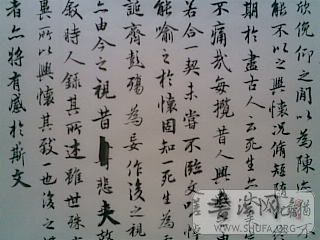 欣俛仰之閒以為陳迹
能不以之興懷況脩短隨
期於盡古人云死生亦
不痛哉每攬昔人興感
若合一契未嘗不臨文嗟
能喻之於懷固知一死生為
誕齊彭殤為妄作後之視
亦由今之視昔悲夫故
叙時人錄其所述雖世殊
異所以興懷其致一也後之
者亦將有感於斯文
書法网
WWW.SHUFA.ORG